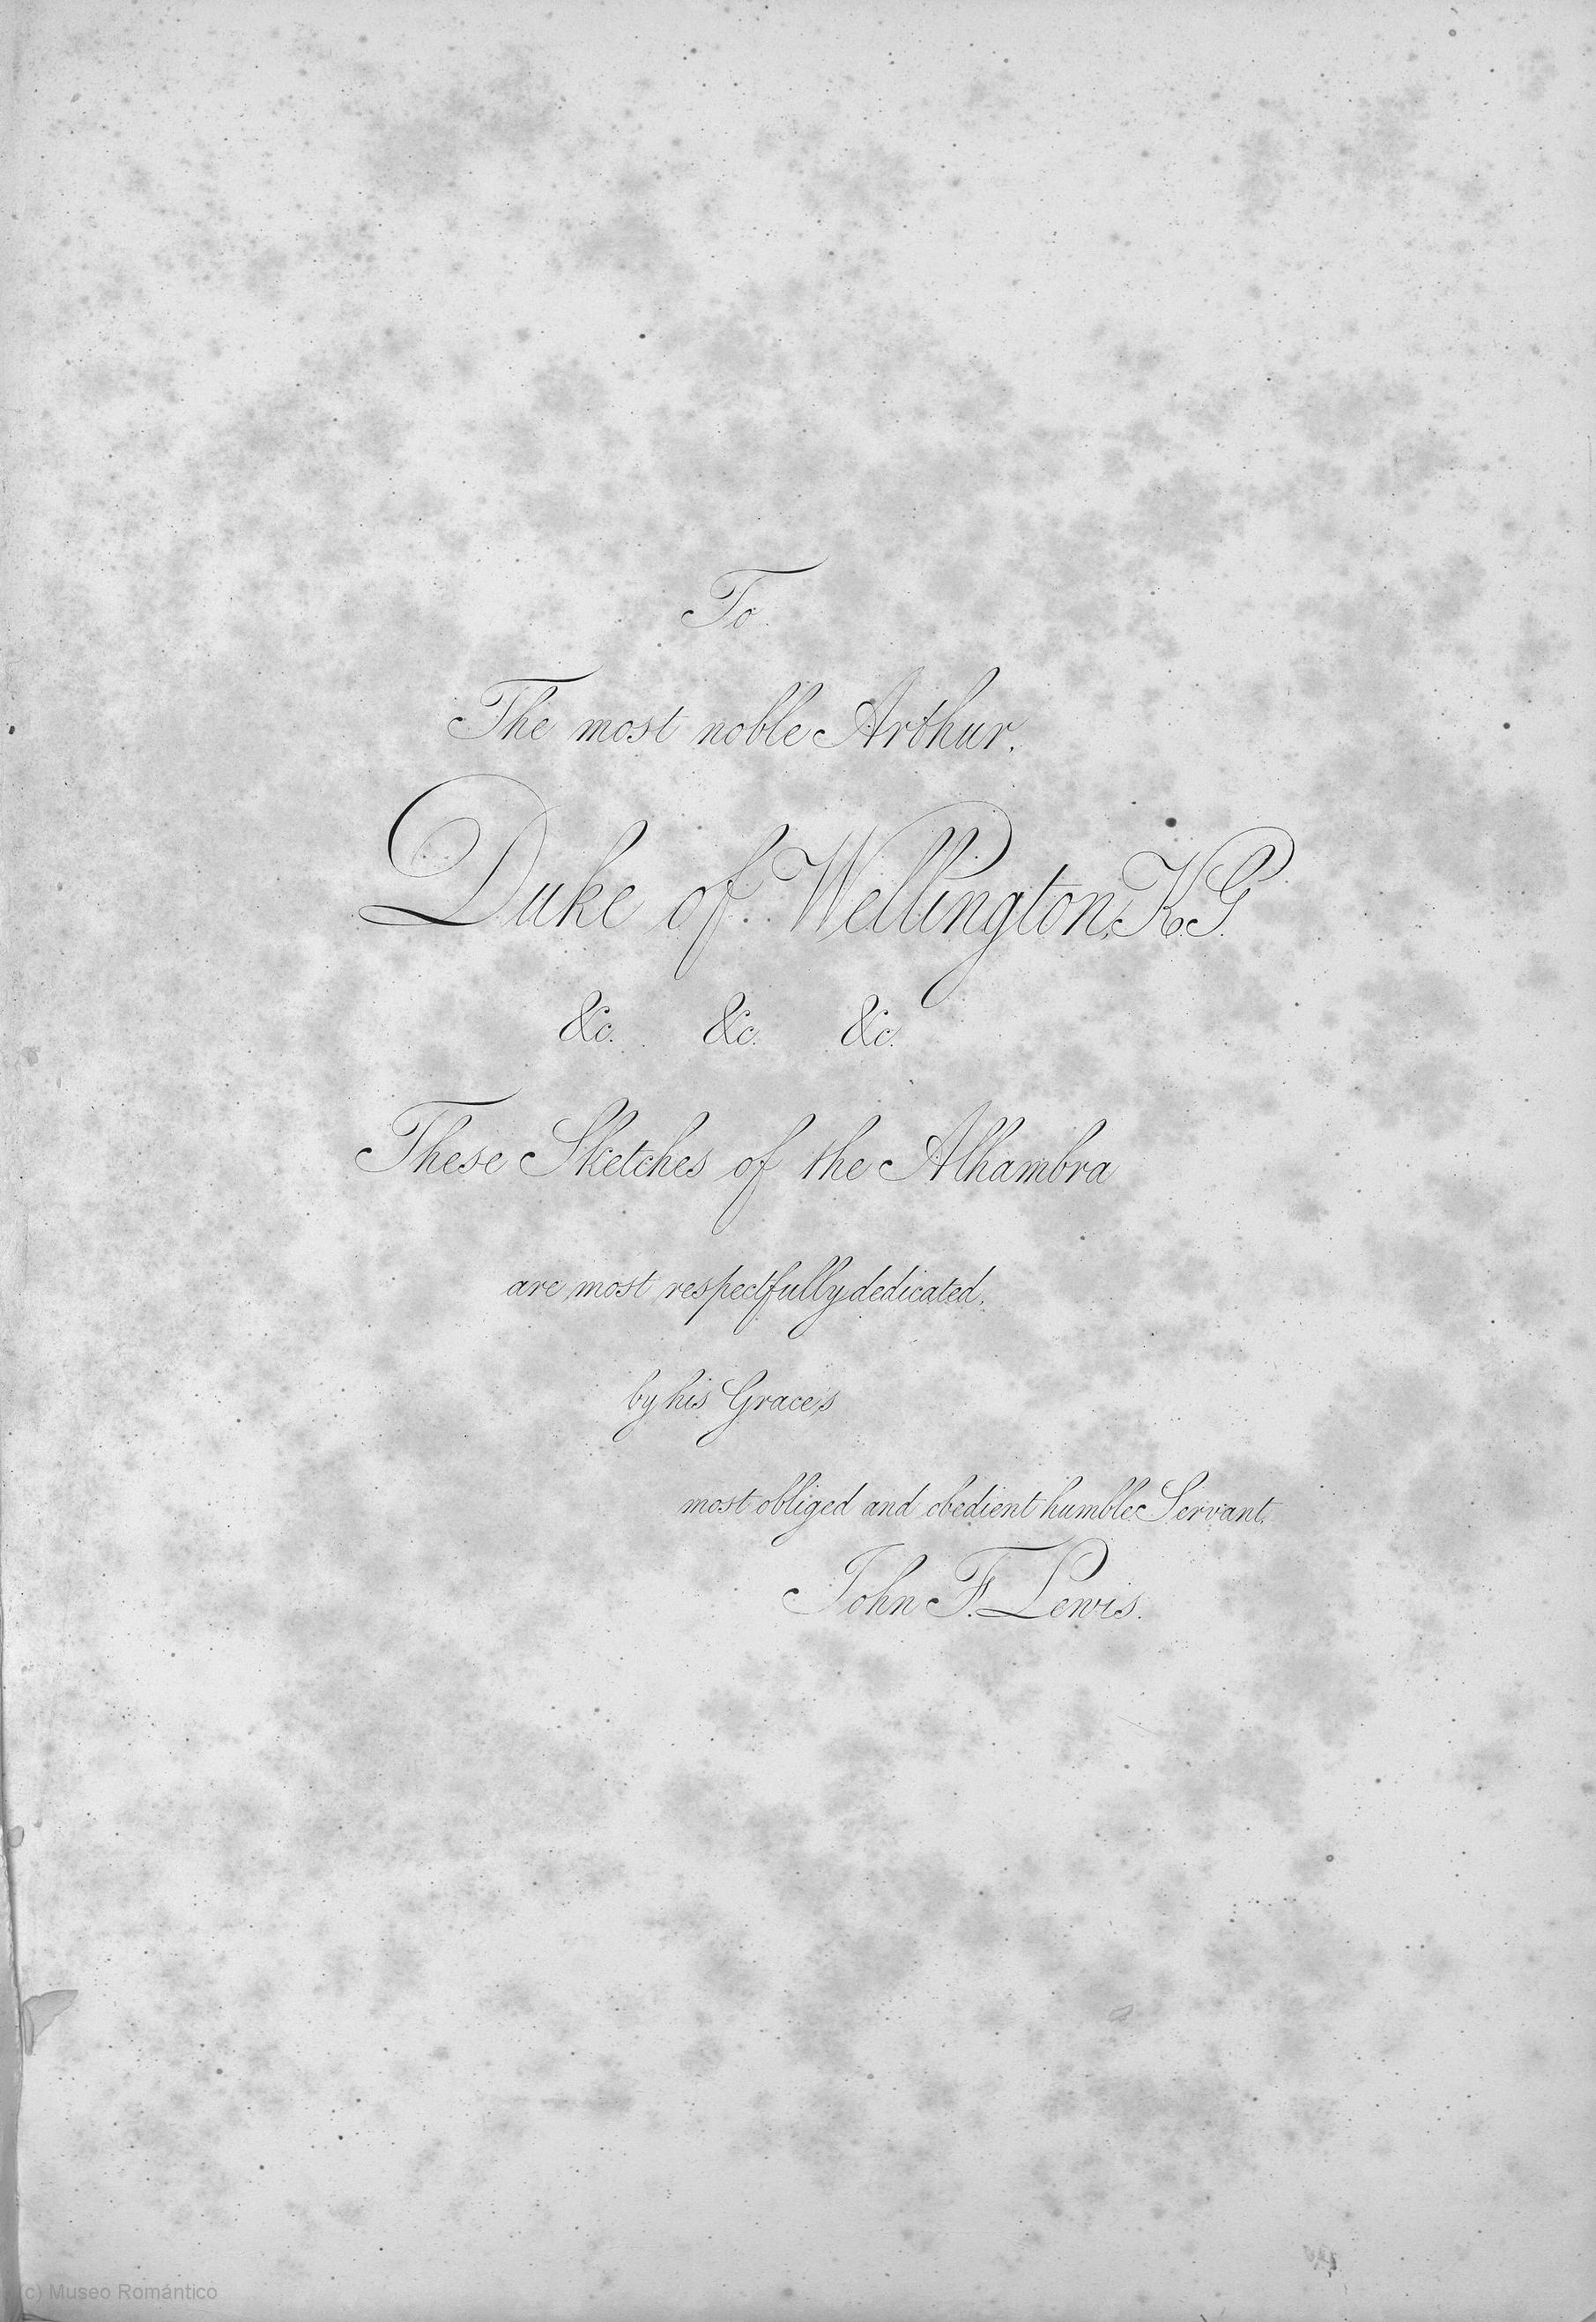 To
The most noble Arthur,
Duke of Wellington, K.G.
&c. &c. &c.
These Sketches of the Alhambra
are most respectfully dedicated,
by his Grace's
most obliged and obedient humble Servant,
John F. Lewis.
(c) Museo Romántico